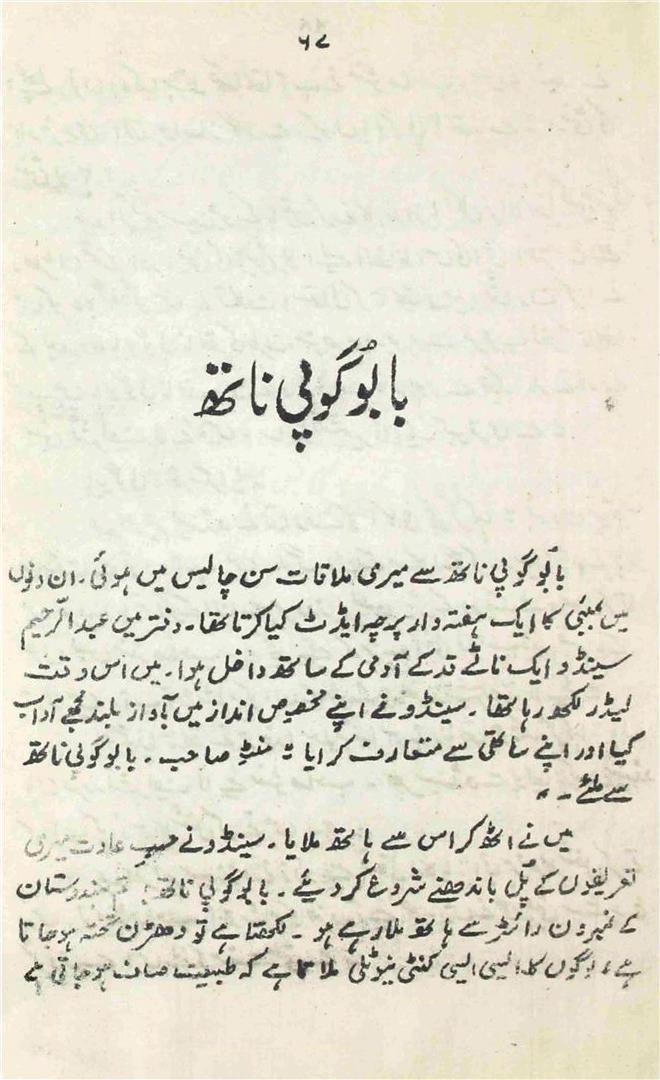 ۶۷
بابُو گوپی ناتھ
بابُو گوپی ناتھ سے میری ملاقات سن چالیس میں ہوئی۔ ان دنوں
میں بمبئی کا ایک ہفتہ وار پرچہ ایڈٹ کیا کرتا تھا۔ دفتر میں عبدالرحیم
سینڈو ایک ناٹے قد کے آدمی کے ساتھ داخل ہوا۔ میں اس وقت
لیڈر لکھ رہا تھا۔ سینڈو نے اپنے مخصوص انداز میں بآواز بلند مجھے آداب
کیا اور اپنے ساتھی سے متعارف کرایا "منٹو صاحب۔ بابو گوپی ناتھ
سے ملئے۔"
میں نے اٹھ کر اس سے ہاتھ ملایا۔ سینڈو نے حسبِ عادت میری
تعریفوں کے پُل باندھنے شروع کر دیئے۔ بابو گوپی ناتھ تم ہندوستان
کے نمبرون رائٹر سے ہاتھ ملا رہے ہو۔ لکھتا ہے تو دھڑن تختہ ہو جاتا
ہے، لوگوں کا ایسی ایسی کنٹی نیوٹلی ملاتا ہے کہ طبیعت صاف ہو جاتی ہے